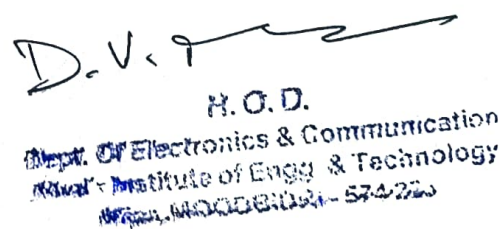 D.V.
H. O. D.
Dept. Of Electronics & Communication
Institute of Engg. & Technology
Mijar, MOODBIDRI - 574 225